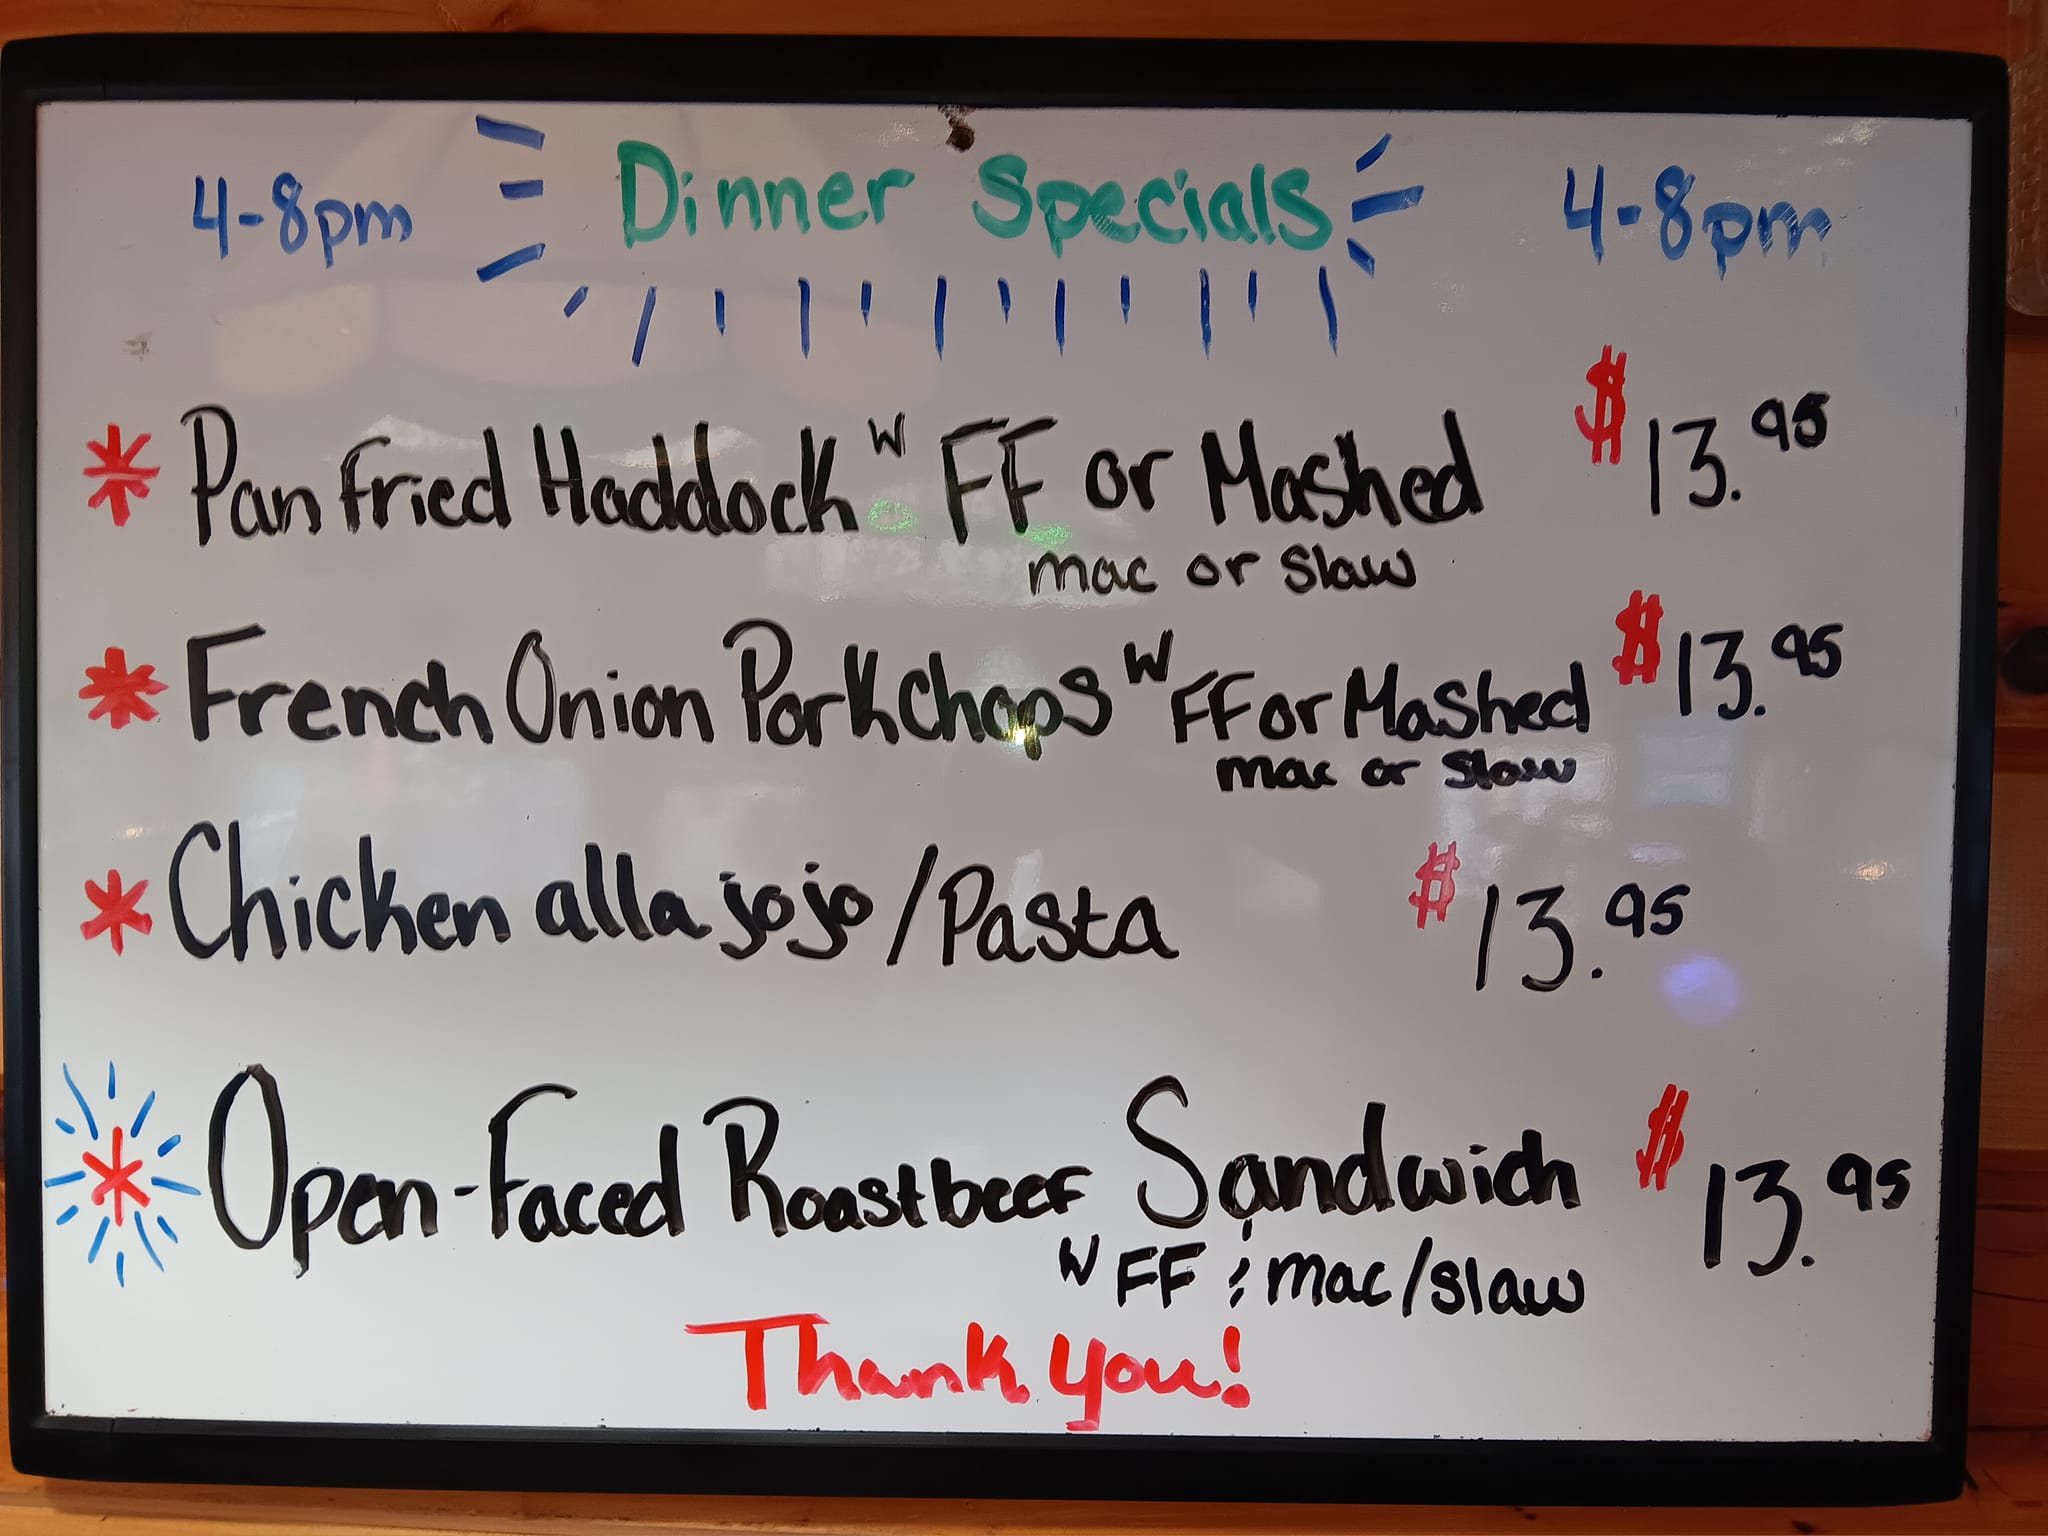 4-8pm Dinner Specials 4-8pm
* Pan fried Haddock w FF or Mashed $13.95
mac or slaw
* French Onion Pork Chops w FF or Mashed $13.95
mac or slaw
* Chicken alla jojo/Pasta $13.95
* Open-Faced Roastbeef Sandwich $13.95
w FF & mac/slaw
Thank you!